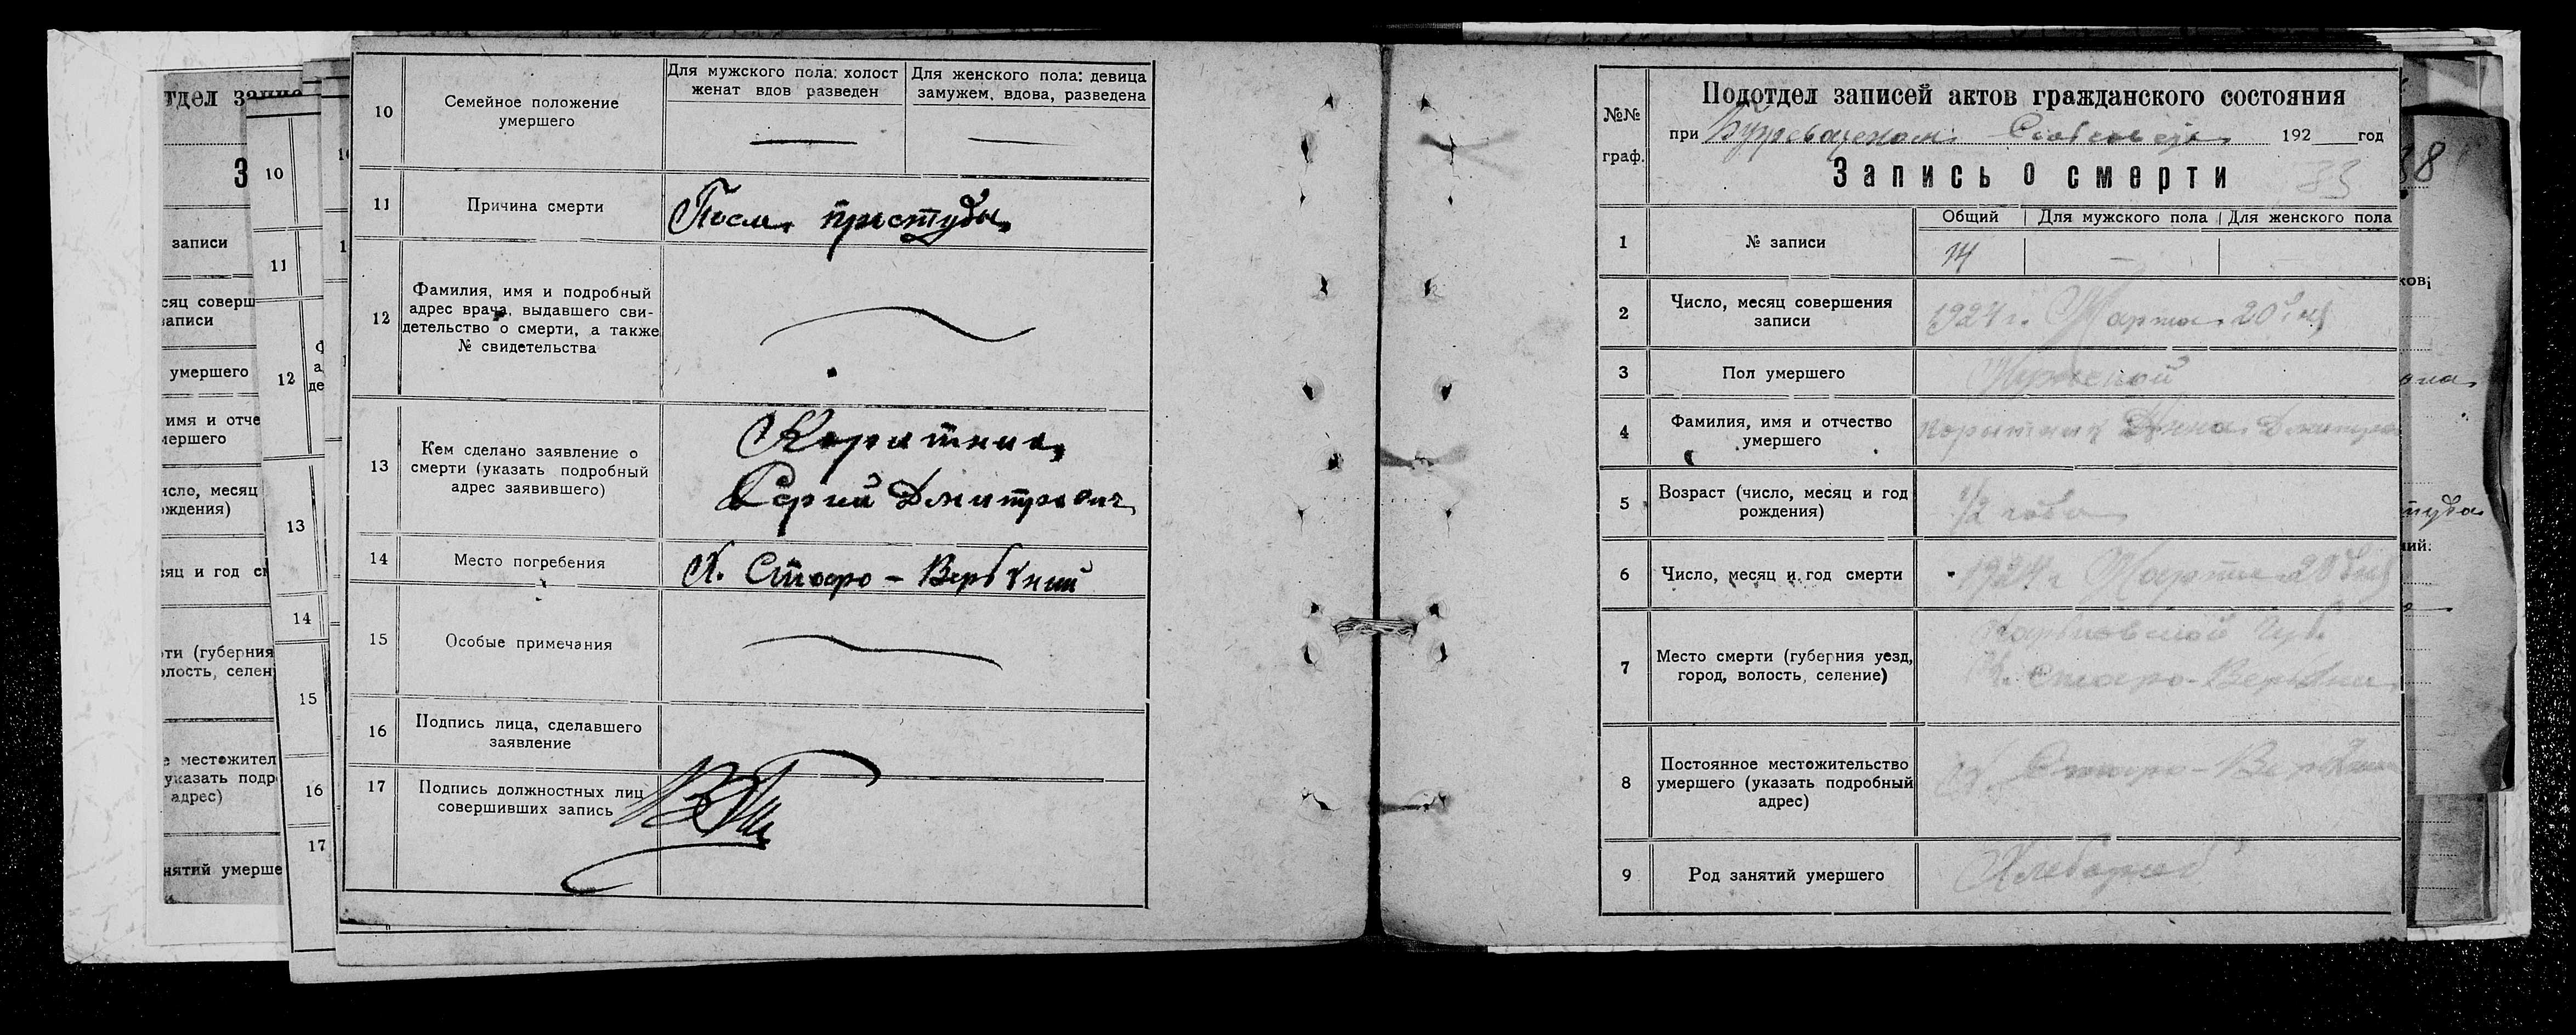 тдел запис
З
записи
сяц соверш
записи
умершего
имя и отче
мершего
исло, месяц
ождения)
яц и год с
ти (губерния
олость, селен
е местожител
указать подр
адрес)
нятий умерше
10
11
12
13
14
15
16
17
10
Семейное положение
умершего
Для мужского пола: холост
женат вдов разведен
Для женского пола: девица
замужем, вдова, разведена
11
Причина смерти
После простуды
12
Фамилия, имя и подробный
адрес врача, выдавшего сви-
детельство о смерти, а также
№ свидетельства
13
Кем сделано заявление о
смерти (указать подробный
адрес заявившего)
Сергий Дмитриевич
14
Место погребения
Х. Старо-Верьхний
15
Особые примечания
16
Подпись лица, сделавшего
заявление
17
Подпись должностных лиц
совершивших запись
№№
граф.
Подотдел записей актов гражданского состояния
при 192 год
Запись о смерти
83
Общий Для мужского пола Для женского пола
1
№ записи
14
2
Число, месяц совершения
записи
1924 г. Марта 20 дня
3
Пол умершего
Мужской
4
Фамилия, имя и отчество
умершего
5
Возраст (число, месяц и год
рождения)
1/2 года
6
Число, месяц и год смерти
1924 г. Марта 20 дня
7
Место смерти (губерния уезд,
город, волость, селение)
Харьковской Губ.
Х. Старо-Верьхний
8
Постоянное местожительство
умершего (указать подробный
адрес)
Х. Старо-Верьхний
9
Род занятий умершего
Хлебороб
38